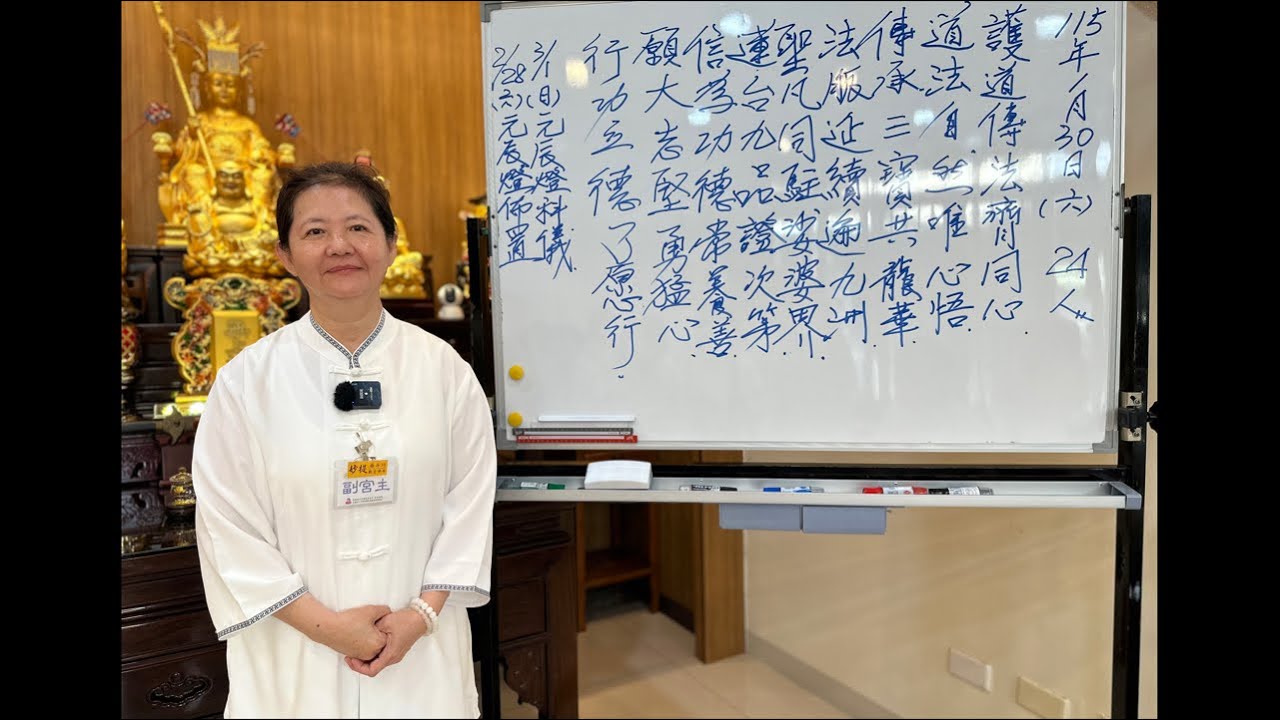 115年1月30日(六) 24人
護道傳法齊同心.
道法自然唯心悟.
傳承三寶共龍華.
法服延續遍九洲
聖凡同駐娑婆界.
蓮台九品證次第.
信為功德常養善.
願大志堅勇猛心.
行功立德了愿行.
3/1(日)元辰燈科儀.
2/28(六)元辰燈佈置
副宮主